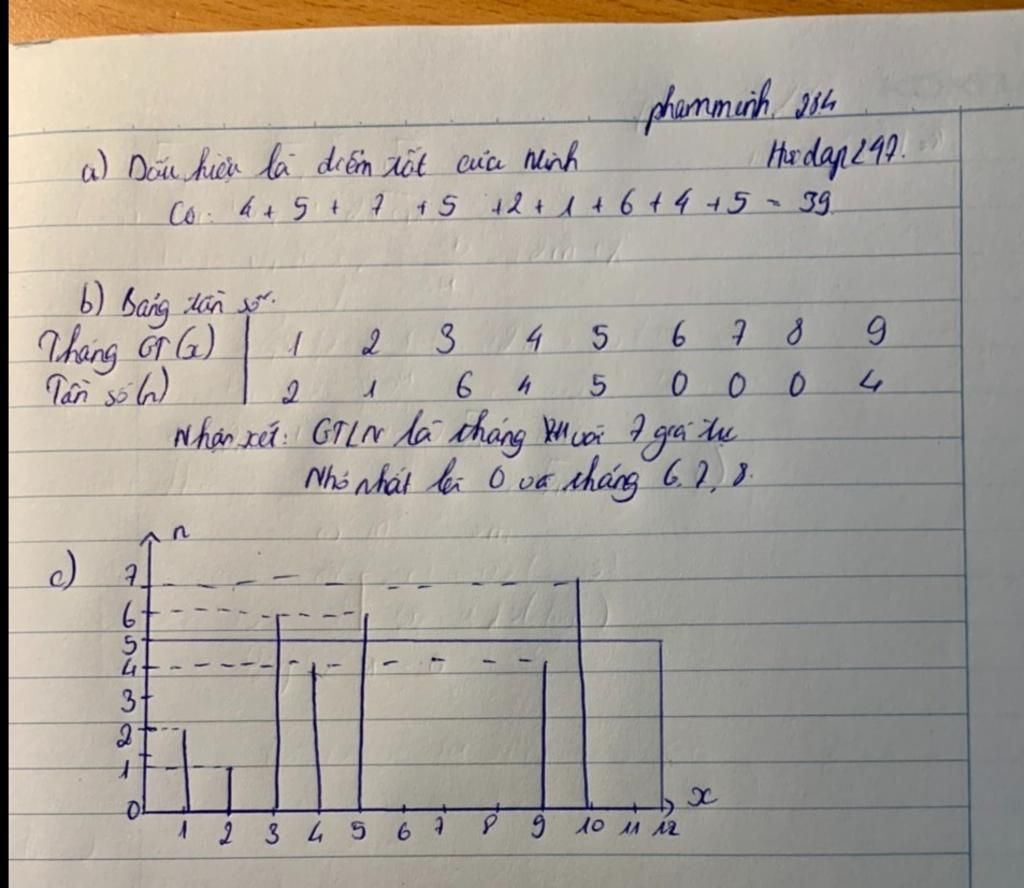 phamminh 284
Hoidap247.
a) Dấu hiệu là điểm tốt của Minh
Có: 4 + 5 + 7 + 5 + 2 + 1 + 6 + 4 + 5 = 39
b) Bảng tần số.
Tháng GT (x) 1 2 3 4 5 6 7 8 9
Tần số (n) 2 1 6 4 5 0 0 0 4
Nhận xét: GTLN là tháng với 7 giá trị
Nhỏ nhất là 0 và tháng 6, 7, 8.
c)
n
7
6
5
4
3
2
1
0
1 2 3 4 5 6 7 8 9 10 11 12
x